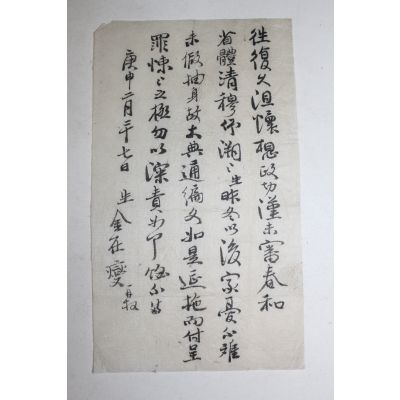 往復久沮懷想政切謹未審春和
省體淸穆仰溯〻生昨冬以後家憂不離
未暇抽身故大典通編如是延拖而付呈
罪悚〻之極勿以深責如何餘不備
庚申二月二十七日 生 金在 再拜